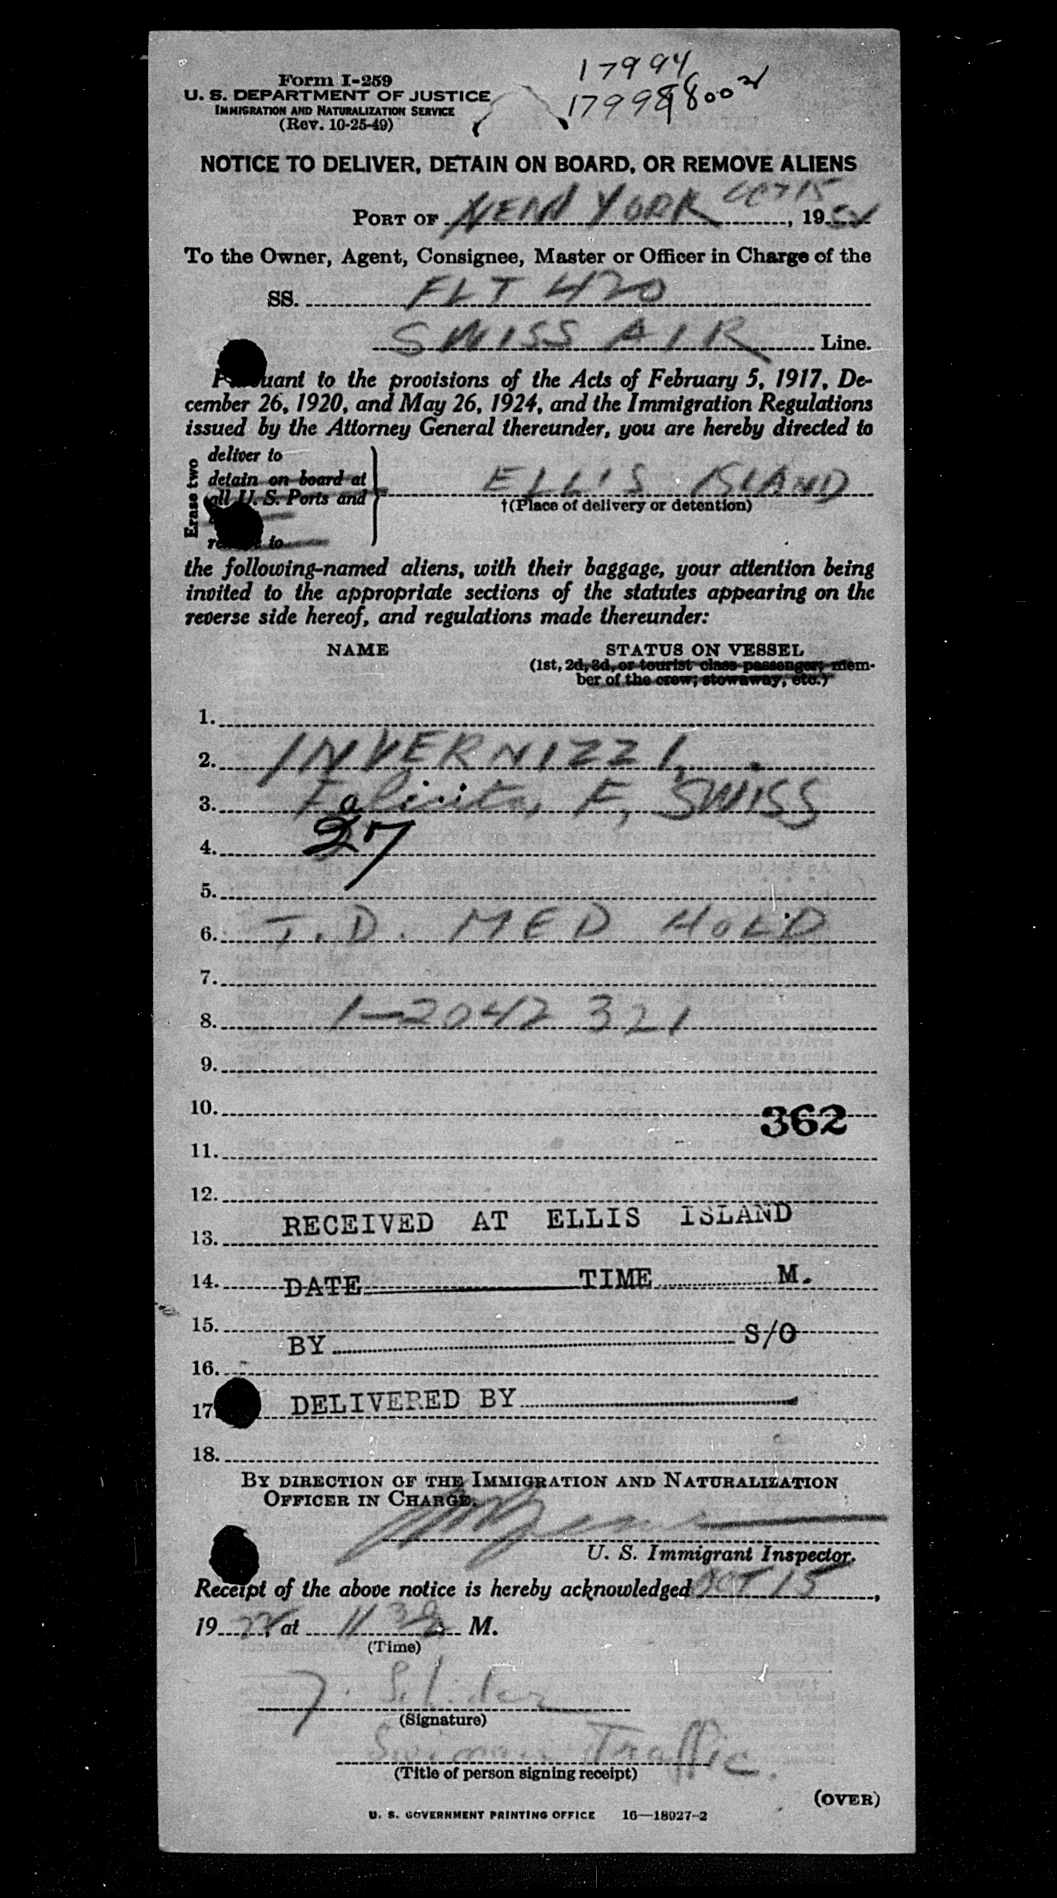 17994
Form I-259
U. S. DEPARTMENT OF JUSTICE
IMMIGRATION AND NATURALIZATION SERVICE
(Rev. 10-25-49)
NOTICE TO DELIVER, DETAIN ON BOARD, OR REMOVE ALIENS
PORT OF NEW YORK OCT 15, 19
To the Owner, Agent, Consignee, Master or Officer in Charge of the
SS. FLT 420
SWISS AIR Line.
Pursuant to the provisions of the Acts of February 5, 1917, De-
cember 26, 1920, and May 26, 1924, and the Immigration Regulations
issued by the Attorney General thereunder, you are hereby directed to
Erase two
deliver to
detain on board at
all U. S. Ports and
to
ELLIS ISLAND
†(Place of delivery or detention)
the following-named aliens, with their baggage, your attention being
invited to the appropriate sections of the statutes appearing on the
reverse side hereof, and regulations made thereunder:
NAME STATUS ON VESSEL
(1st, 2d, 3d, or tourist class passenger; mem-
ber of the crew; stowaway, etc.)
1.
2. INVERNIZZI,
3. Felicita, F, SWISS
27
4.
5.
6. T.D. MED HOLD
7.
8. 1-2042 321
9.
10.
362
11.
12.
RECEIVED AT ELLIS ISLAND
13.
14. DATE TIME M.
15.
BY S/O
16.
17. DELIVERED BY
18.
BY DIRECTION OF THE IMMIGRATION AND NATURALIZATION
OFFICER IN CHARGE.
U. S. Immigrant Inspector.
Receipt of the above notice is hereby acknowledged OCT 15,
19 at 11 M.
(Time)
(Signature)
Traffic.
(Title of person signing receipt)
(OVER)
U. S. GOVERNMENT PRINTING OFFICE 16—18927-2